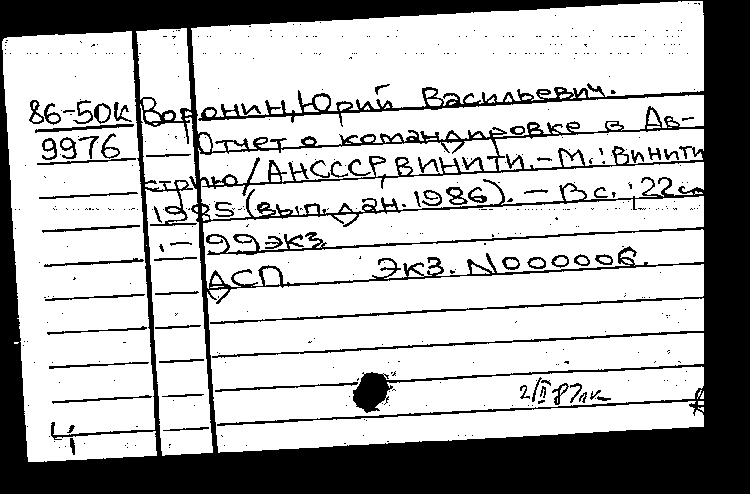 86-50к Воронин, Юрий Васильевич.
9976 Отчет о командировке в Ав-
стрию / АНСССР, ВИНИТИ. - М.: ВИНИТИ
1985 (вып. дан. 1986). - 8 с.; 22 см
. - 99 экз.
ДСП. Экз. N000006.
2/II 87
4